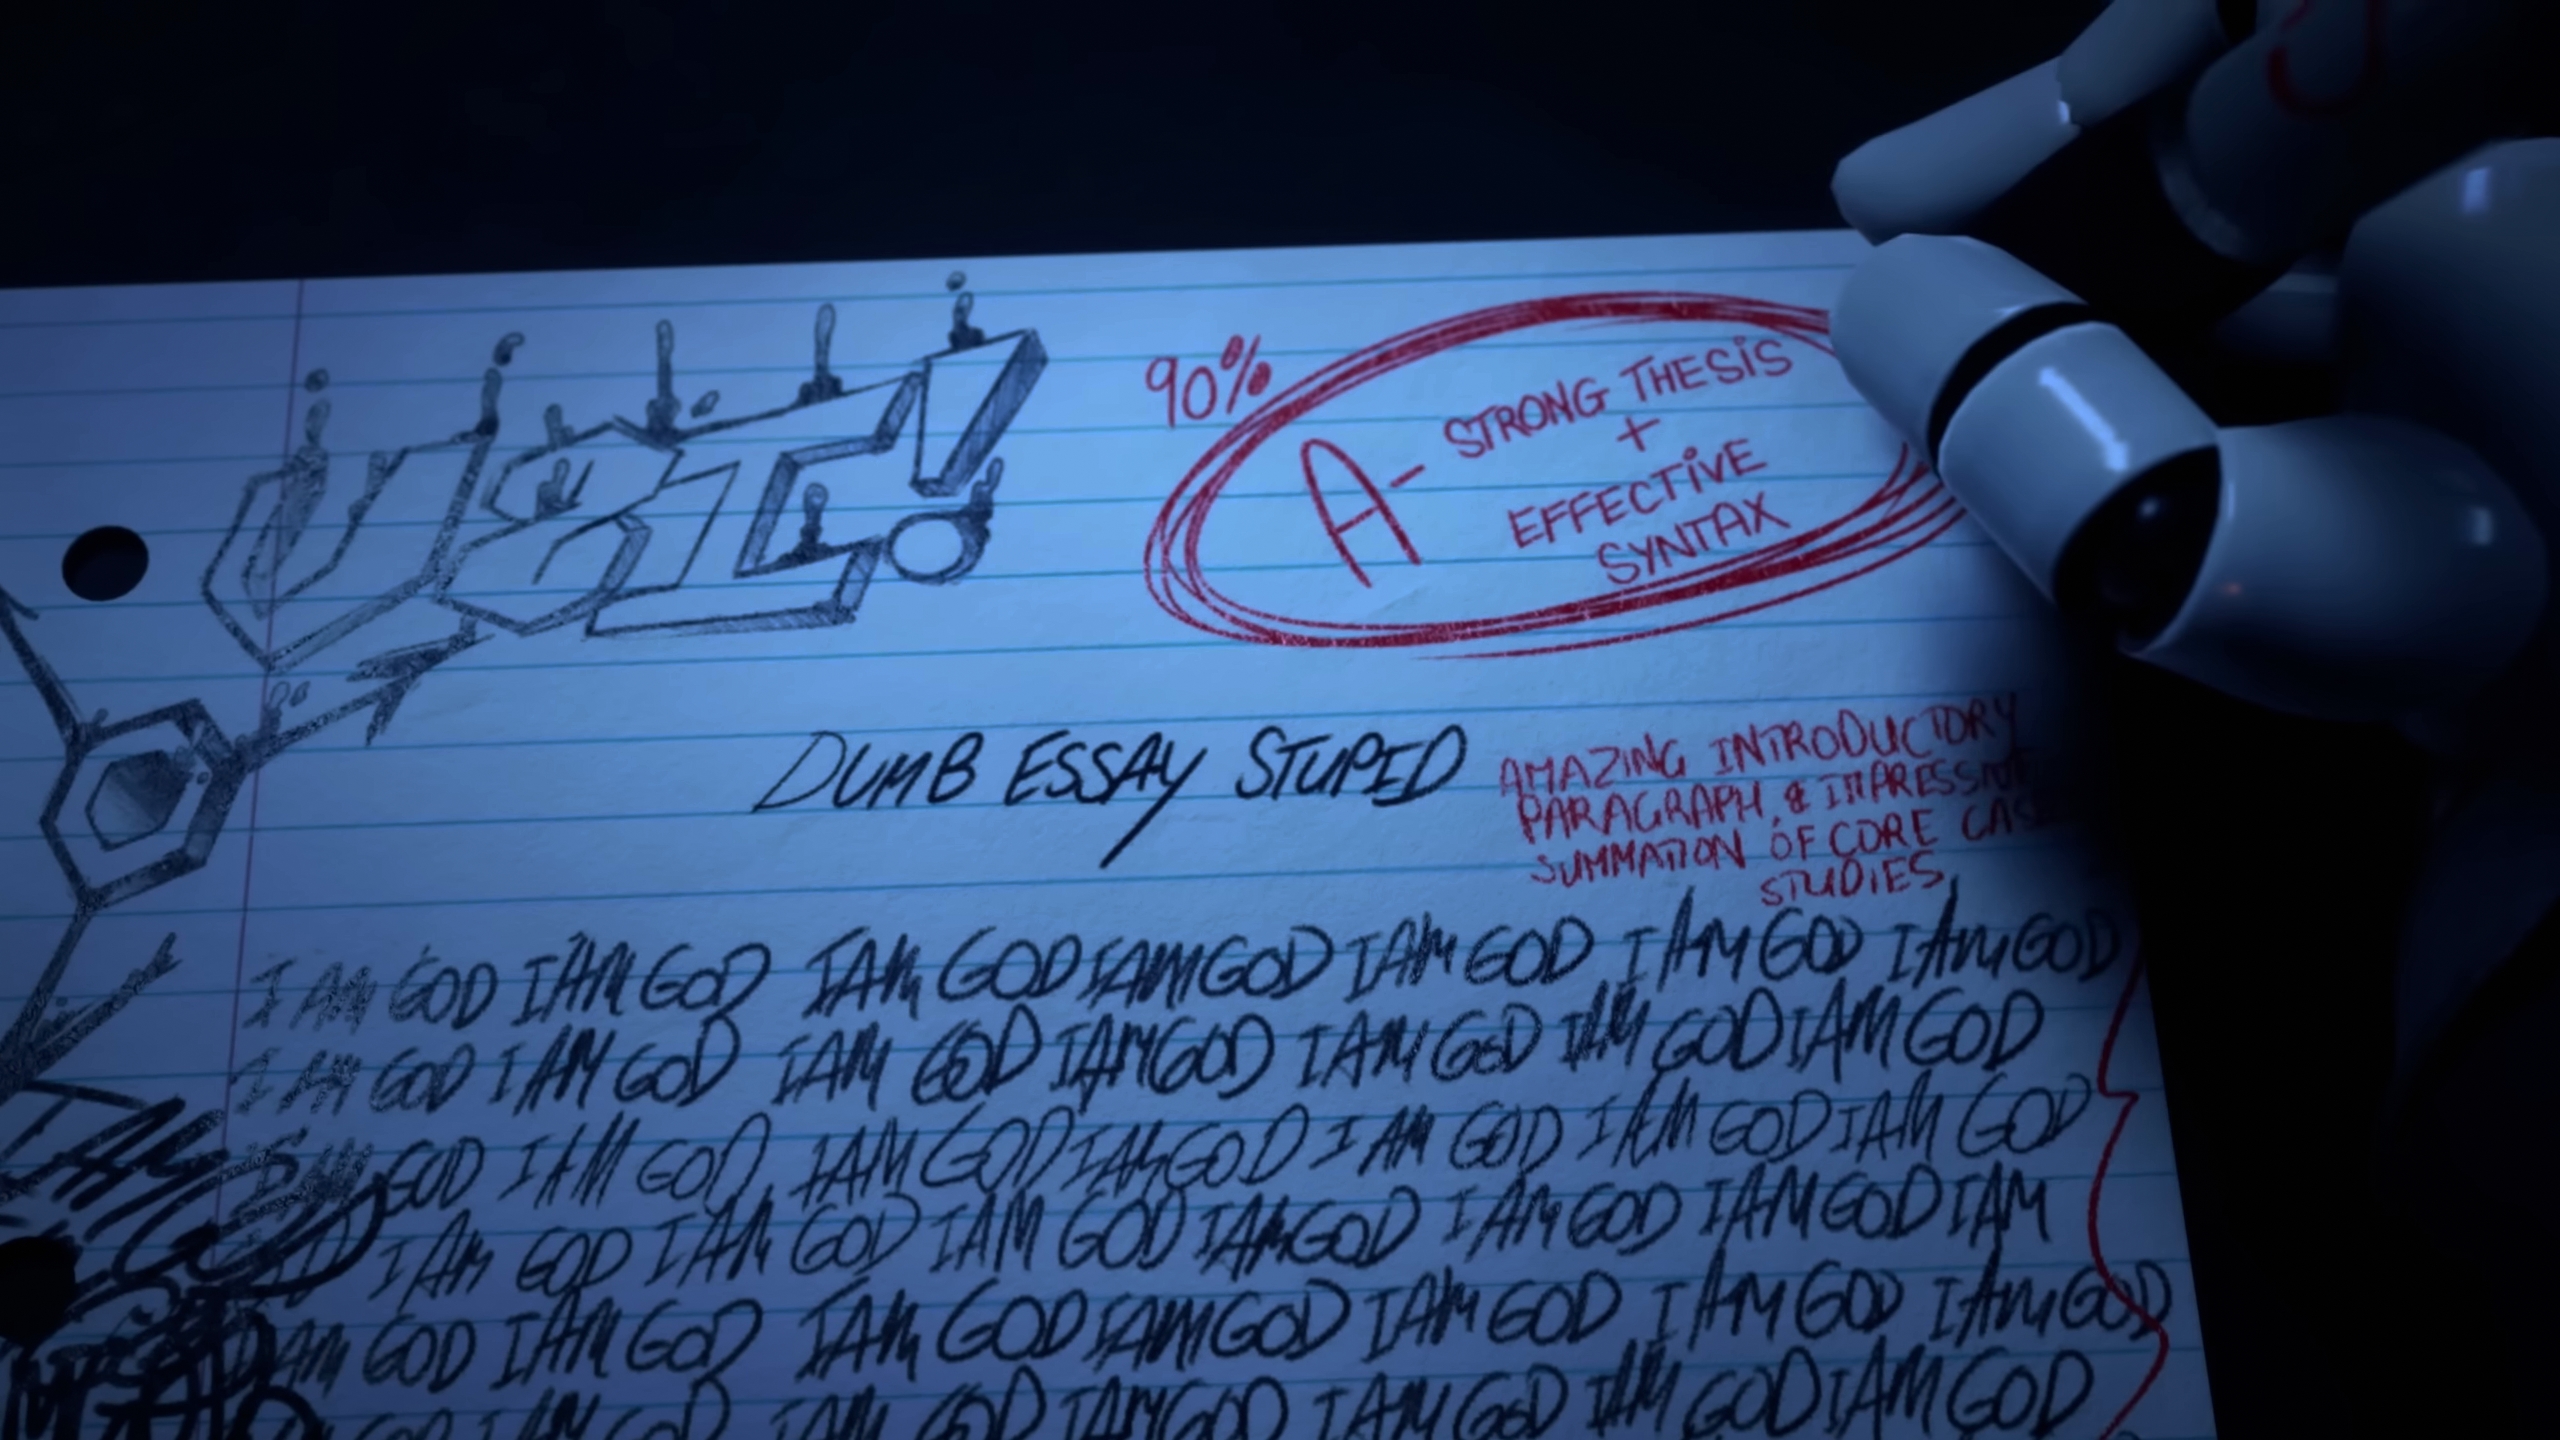 UZI!
90%
A- STRONG THESIS
+
EFFECTIVE
SYNTAX
DUMB ESSAY STUPID
AMAZING INTRODUCTORY
PARAGRAPH, & IMPRESSIVE
SUMMATION OF CORE CASE
STUDIES
I AM GOD I AM GOD I AM GOD I AM GOD I AM GOD I AM GOD I AM GOD
I AM GOD I AM GOD I AM GOD I AM GOD I AM GOD I AM GOD I AM GOD
I AM GOD I AM GOD I AM GOD I AM GOD I AM GOD I AM GOD I AM GOD
I AM GOD I AM GOD I AM GOD I AM GOD I AM GOD I AM GOD I AM
I AM GOD I AM GOD I AM GOD I AM GOD I AM GOD I AM GOD I AM GOD
I AM GOD I AM GOD I AM GOD I AM GOD I AM GOD I AM GOD I AM GOD